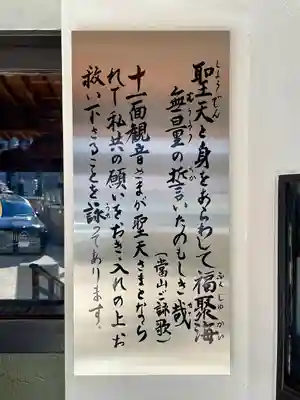 聖天と身をあらわして福聚海
無量の誓言たのもしき哉
(当山ご詠歌)
十一面観音さまが聖天さまとなら
れて私共の願いをお聞き入れの上お
救い下さることを詠ってあります。